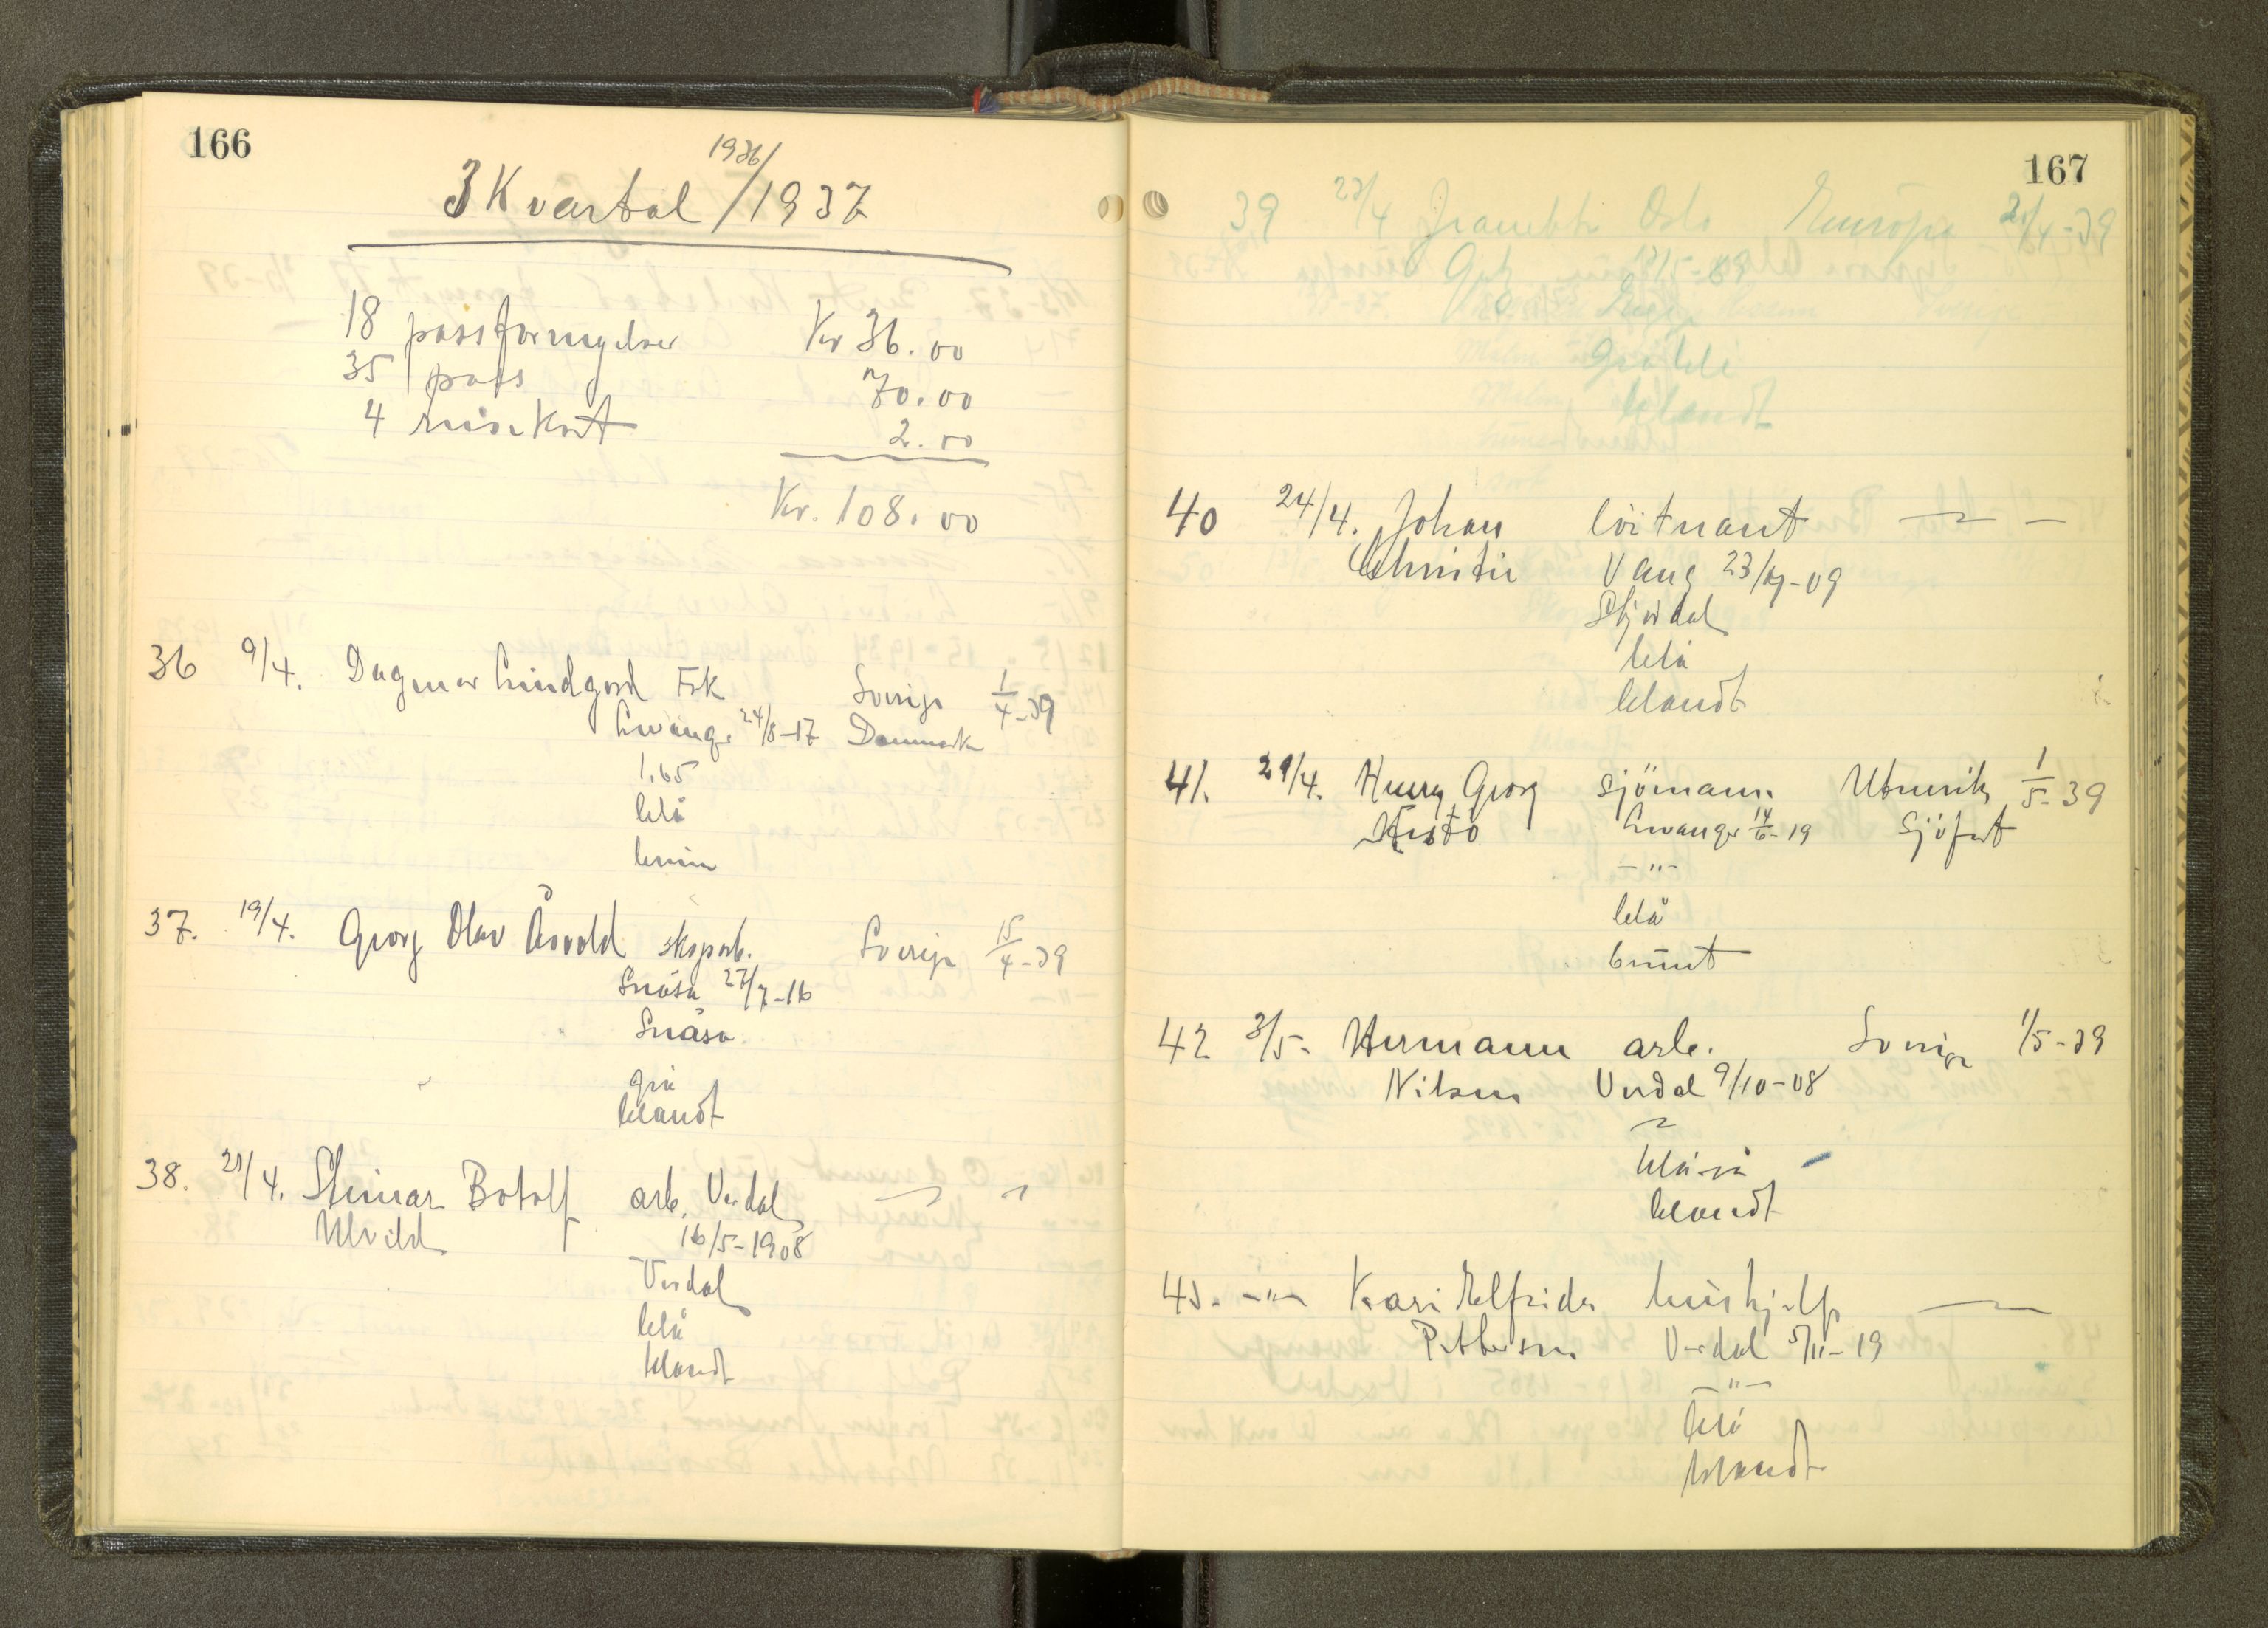 166
3 Kvartal 1936/1937
18 passfornyelser Kr 36.00
35 pass 70.00
4 reisekort 2.00
Kr. 108.00
36 9/4. Dagmar Lindgord Frk Sverige 1/4-39
Levanger 24/8-17 Danmark
1.65
blå
brun
37. 19/4. Georg Olav Åsvold skogarb. Sverige 15/4-39
Snåsa 27/7-16
Snåsa
grå
blandt
38. 21/4. Steinar Botolf arb. Verdal
Ulvild 16/5-1908
Verdal
blå
blandt
167
39 23/4 Oslo Europa 21/4-39
blandt
40 24/4. Johan löitnant
Christie Vang 23/ -09
Stjørdal
blå
blandt
41. 29/4. Georg sjömann. Utenriks 1/5-39
Levanger 14/6-19 Sjöfart
-"-
blå
brunt
42 3/5- Hermann arb. Sverige 1/5-39
Nilsen Verdal 9/10-08
blågrå
blandt
43. -"- Kari Elfrida hushjelp
Pettersen Verdal 5/11-19
-"-
blå
blandt